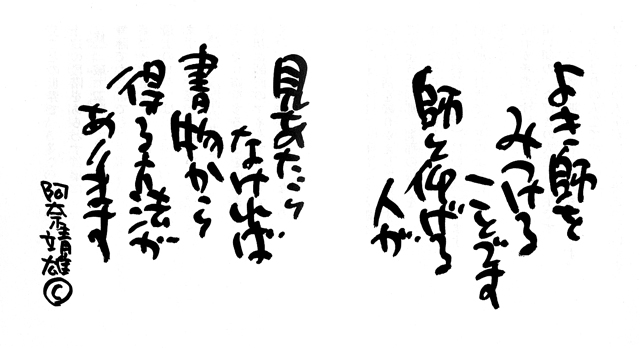 よき師を
みつける
ことです
師と仰げる
人が
見あたら
なければ
書物から
得る方法が
あります
阿奈靖雄©